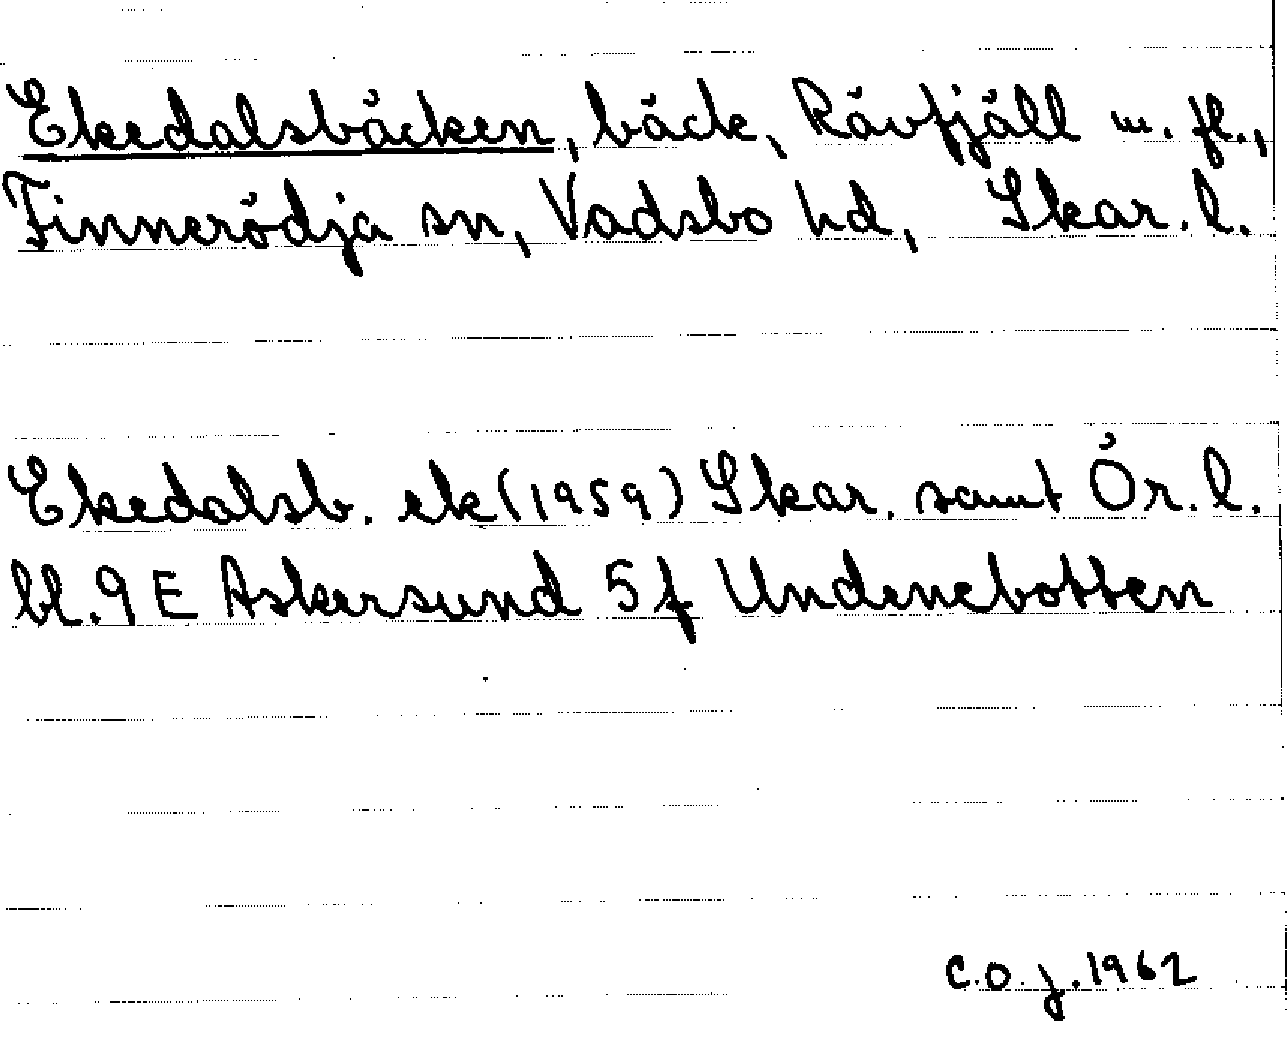 Ekedalsbäcken, bäck, Rävfjäll m. fl.,
Finnerödja sn, Vadsbo hd, Skar. l.
Ekedalsb. ek (1959) Skar. samt Ör. l.
bl. 9 E Askersund 5 f Undenebotten
C.O.J. 1962